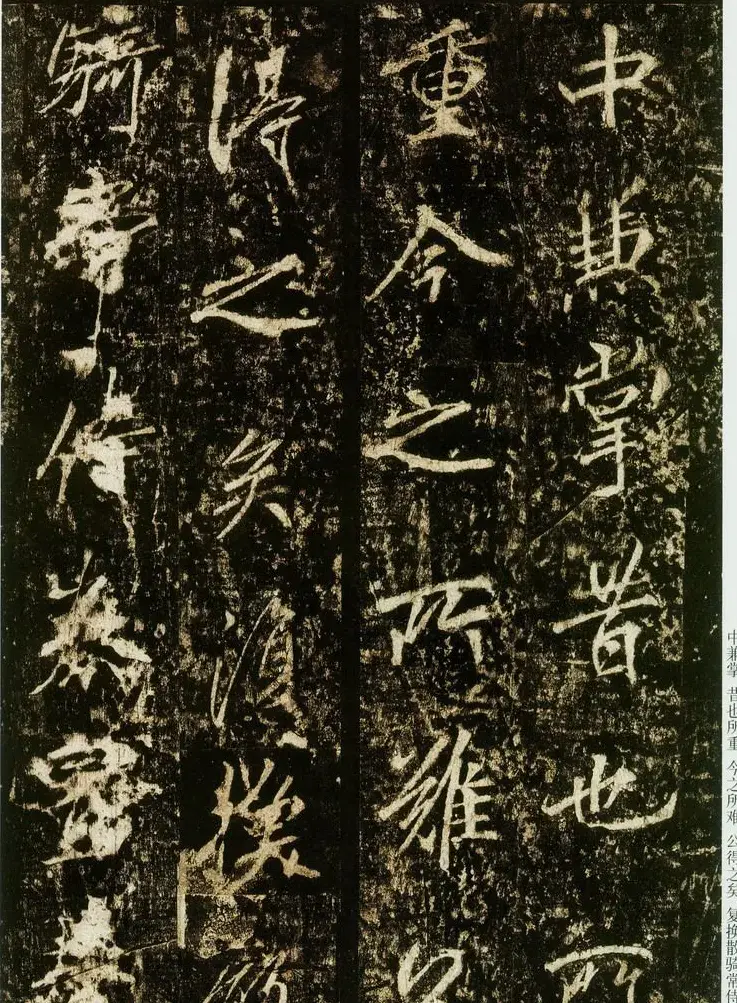 中兼掌昔也所
重今之所難公
得之矣復換散
騎常侍
中兼掌 昔也所重 今之所难 公得之矣 复换散骑常侍